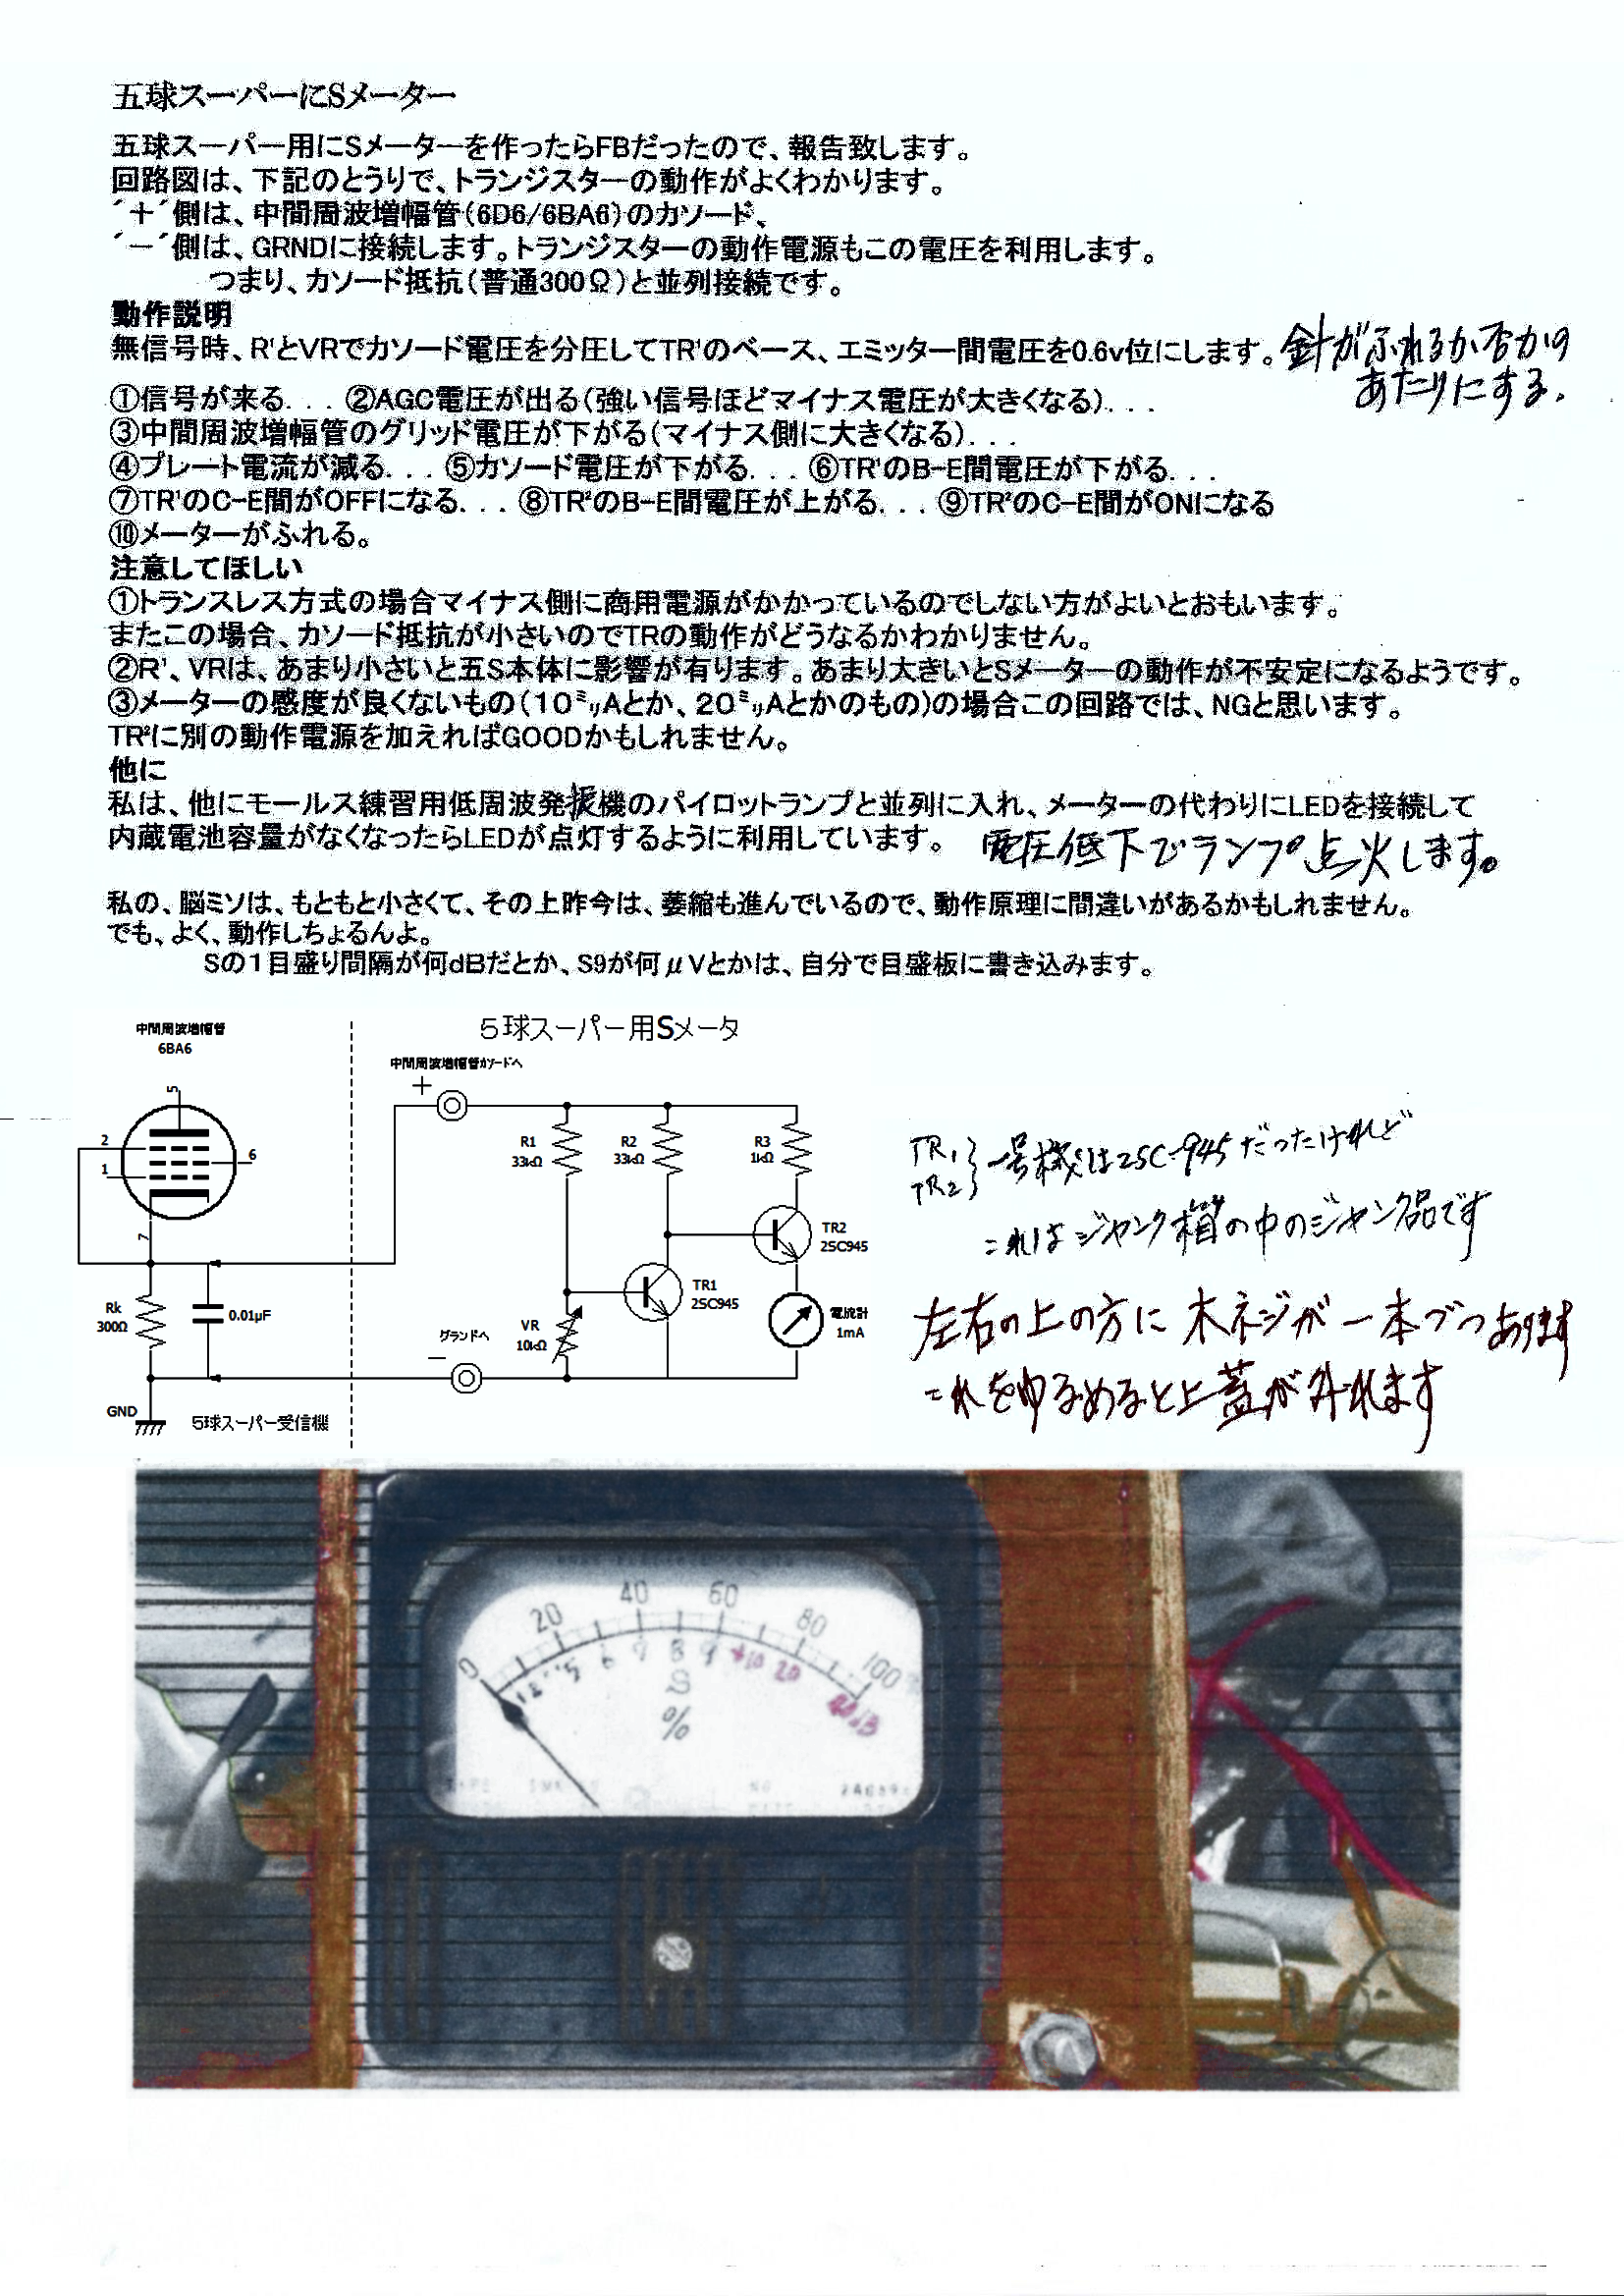 五球スーパーにSメーター
五球スーパー用にSメーターを作ったらFBだったので、報告致します。
回路図は、下記のとうりで、トランジスターの動作がよくわかります。
´＋´側は、中間周波増幅管(6D6/6BA6)のカソード、
´－´側は、GRNDに接続します。トランジスターの動作電源もこの電圧を利用します。
つまり、カソード抵抗(普通300Ω)と並列接続です。
動作説明
無信号時、R¹とVRでカソード電圧を分圧してTR¹のベース、エミッター間電圧を0.6v位にします。針がふれるか否かの
あたりにする.
①信号が来る... ②AGC電圧が出る(強い信号ほどマイナス電圧が大きくなる)...
③中間周波増幅管のグリッド電圧が下がる(マイナス側に大きくなる)...
④プレート電流が減る... ⑤カソード電圧が下がる... ⑥TR¹のB-E間電圧が下がる...
⑦TR¹のC-E間がOFFになる... ⑧TR²のB-E間電圧が上がる... ⑨TR²のC-E間がONになる
⑩メーターがふれる。
注意してほしい
①トランスレス方式の場合マイナス側に商用電源がかかっているのでしない方がよいとおもいます。
またこの場合、カソード抵抗が小さいのでTRの動作がどうなるかわかりません。
②R¹、VRは、あまり小さいと五S本体に影響が有ります。あまり大きいとSメーターの動作が不安定になるようです。
③メーターの感度が良くないもの(10㍉Aとか、20㍉Aとかのもの)の場合この回路では、NGと思います。
TR²に別の動作電源を加えればGOODかもしれません。
他に
私は、他にモールス練習用低周波発振機のパイロットランプと並列に入れ、メーターの代わりにLEDを接続して
内蔵電池容量がなくなったらLEDが点灯するように利用しています。 電圧低下でランプ点火します。
私の、脳ミソは、もともと小さくて、その上昨今は、萎縮も進んでいるので、動作原理に間違いがあるかもしれません。
でも、よく、動作しちょるんよ。
Sの1目盛り間隔が何dBだとか、S9が何μVとかは、自分で目盛板に書き込みます。
5球スーパー用Sメータ
中間周波増幅管
6BA6
中間周波増幅管カソードへ
+
5
2
1
6
7
R1
33kΩ
R2
33kΩ
R3
1kΩ
TR2
2SC945
TR1
2SC945
Rk
300Ω
0.01μF
VR
10kΩ
電流計
1mA
グランドへ
－
GND
5球スーパー受信機
TR1 TR2 } 一号機は2SC-945だったけれど
これはジャンク箱の中のジャンク品です
左右の上の方に木ネジが一本づつあります
これをゆるめると上蓋が外れます
0 20 40 60 80 100
5 6 7 8 9 +10 20
S
%